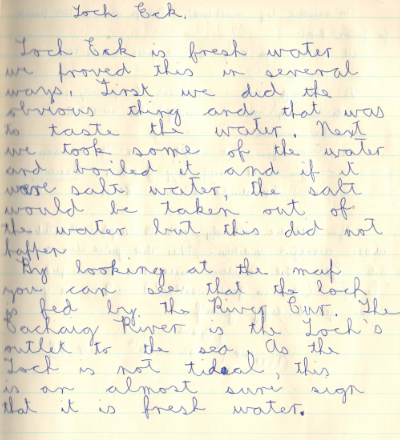 Loch Eck.
Loch Eck is fresh water
we proved this in several
ways. First we did the
obvious thing and that was
to taste the water. Next
we took some of the water
and boiled it and if it
were salt water, the salt
would be taken out of
the water but, this did not
happen
By looking at the map
you can see that the loch
is fed by the River Cur. The
Eachaig River is the Loch's
outlet to the sea. As the
Loch is not tidal, this
is an almost sure sign
that it is fresh water.